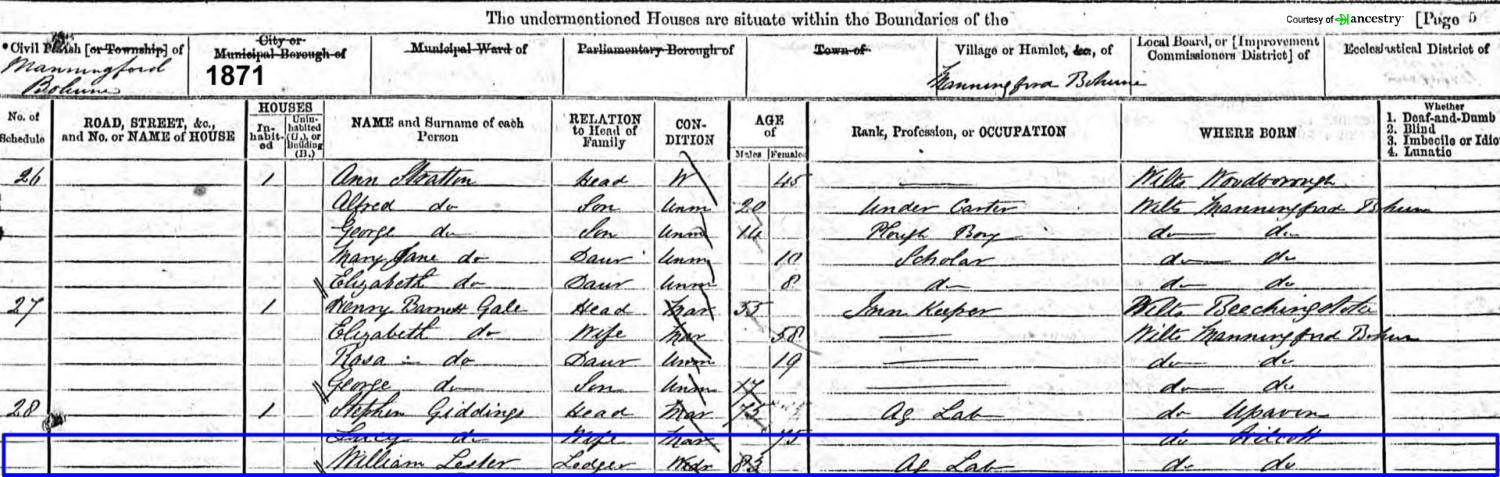 The undermentioned Houses are situate within the Boundaries of the
Courtesy of ancestry [Page 5
Civil Parish [or Township] of
City or Municipal Borough of
Municipal Ward of
Parliamentary Borough of
Town of
Village or Hamlet, &c., of
Local Board, or [Improvement Commissioners District] of
Ecclesiastical District of
Manningford Bohune
1871
Manningford Bohune
No. of Schedule
ROAD, STREET, &c., and No. or NAME of HOUSE
HOUSES
In-habit-ed
Unin-habited (U.), or Building (B.)
NAME and Surname of each Person
RELATION to Head of Family
CON-DITION
AGE of
Males Females
Rank, Profession, or OCCUPATION
WHERE BORN
Whether
1. Deaf-and-Dumb
2. Blind
3. Imbecile or Idio
4. Lunatic
26 1 Ann Stratton Head W 45 Wilts Woodborough
Alfred do Son Unm 20 Under Carter Wilts Manningford Bohune
George do Son Unm 14 Plough Boy do do
Mary Jane do Daur Unm 10 Scholar do do
Elizabeth do Daur Unm 8 do do do
27 1 Henry Barnett Gale Head Mar 55 Inn Keeper Wilts Beechingstoke
Elizabeth do Wife Mar 58 Wilts Manningford Bohune
Rosa do Daur Unm 19 do do
George do Son Unm 17 do do
28 1 Stephen Giddings Head Mar 75 Ag Lab do Upavon
Lucy do Wife Mar 75 do Hilcott
William Lester Lodger Widr 83 Ag Lab do do